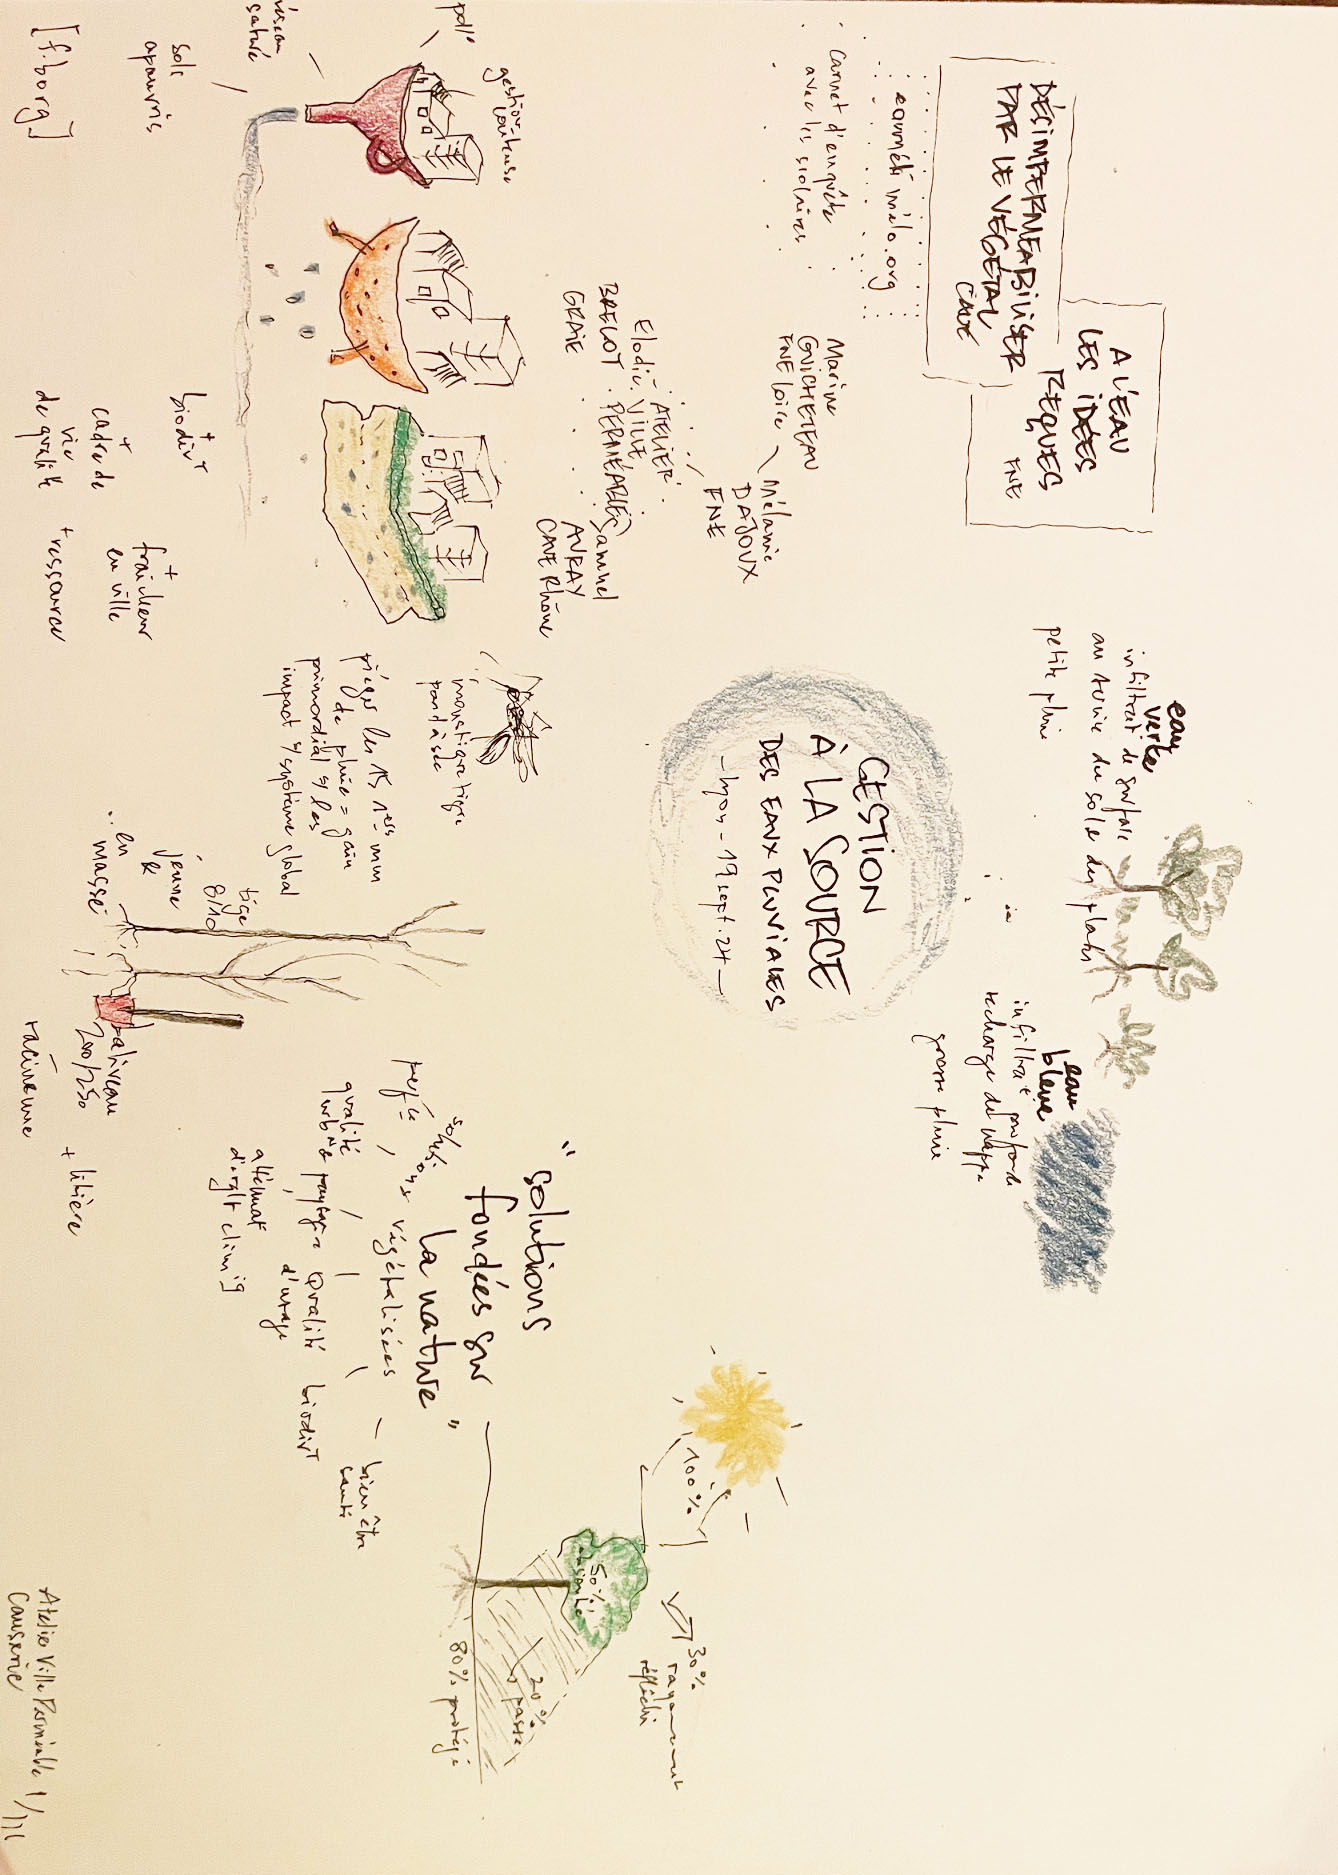 DÉSIMPERMÉABILISER
PAR LE VÉGÉTAL
CAUE
A L'EAU
LES IDÉES
REÇUES
FNE
eaumélimélo.org
carnet d'enquête
avec les scolaires
Marine
GUICHETEAU
FNE Loire
Mélanie
DAJOUX
FNE
Elodie
BRELOT
GRAIE
ATELIER
VILLE
PERMÉABLES
Samuel
AURAY
CAUE Rhône
poll°
gestion couteuse
réseau
saturé
sols
apauvris
[f.borg]
+
biodivT
+
cadre de
vie
de qualité
+
fraicheur
en ville
+ ressource
moustique tigre
piéger les 15 1ers mm
de pluie = gain
primordial s/ les
impact s/ système global
GESTION
À LA SOURCE
DES EAUX PLUVIALES
- Lyon - 19 sept. 24 -
eau
verte
infiltrat° de surface
au service du sol & des plantes
petite pluie
eau
bleue
infiltrat° profonde
recharge de nappe
grosse pluie
tige
8/10
jeune
&
.. en
masse
baliveau
200/250
racine nue
+ litière
"solutions
fondées sur
la nature"
végétalisées
qualité
urbne
paysagère
qualité
d'usage
biodivT
bien être
santé
100%
50%
30%
rayonnement
réfléchi
20%
passe
80% protégé
Atelier Ville Perméable 1/
Causerie